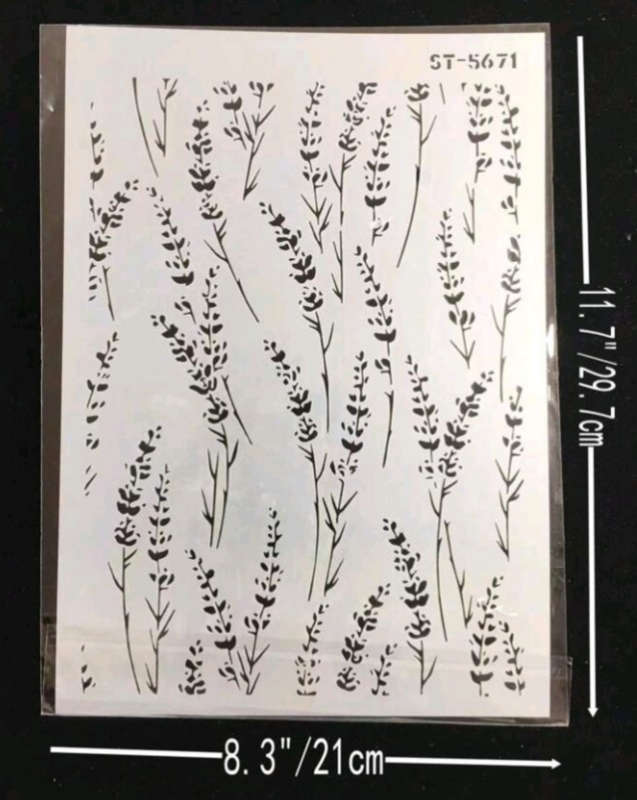 ST-5671
11.7"/29.7cm
8.3"/21cm